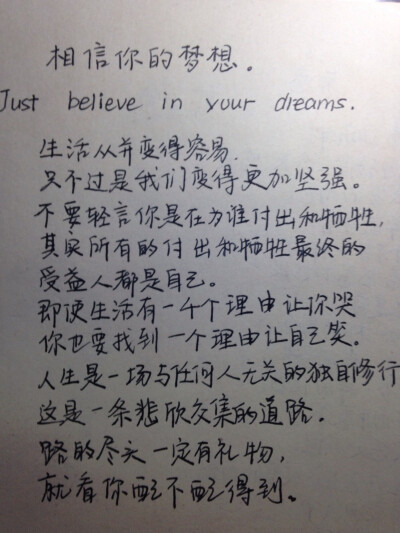 相信你的梦想。
Just believe in your dreams.
生活从并变得容易.
只不过是我们变得更加坚强。
不要轻言你是在为谁付出和牺牲,
其实所有的付出和牺牲最终的
受益人都是自己。
即便生活有一千个理由让你哭
你也要找到一个理由让自己笑。
人生是一场与任何人无关的独自修行
这是一条悲欣交集的道路.
路的尽头一定有礼物,
就看你配不配得到。